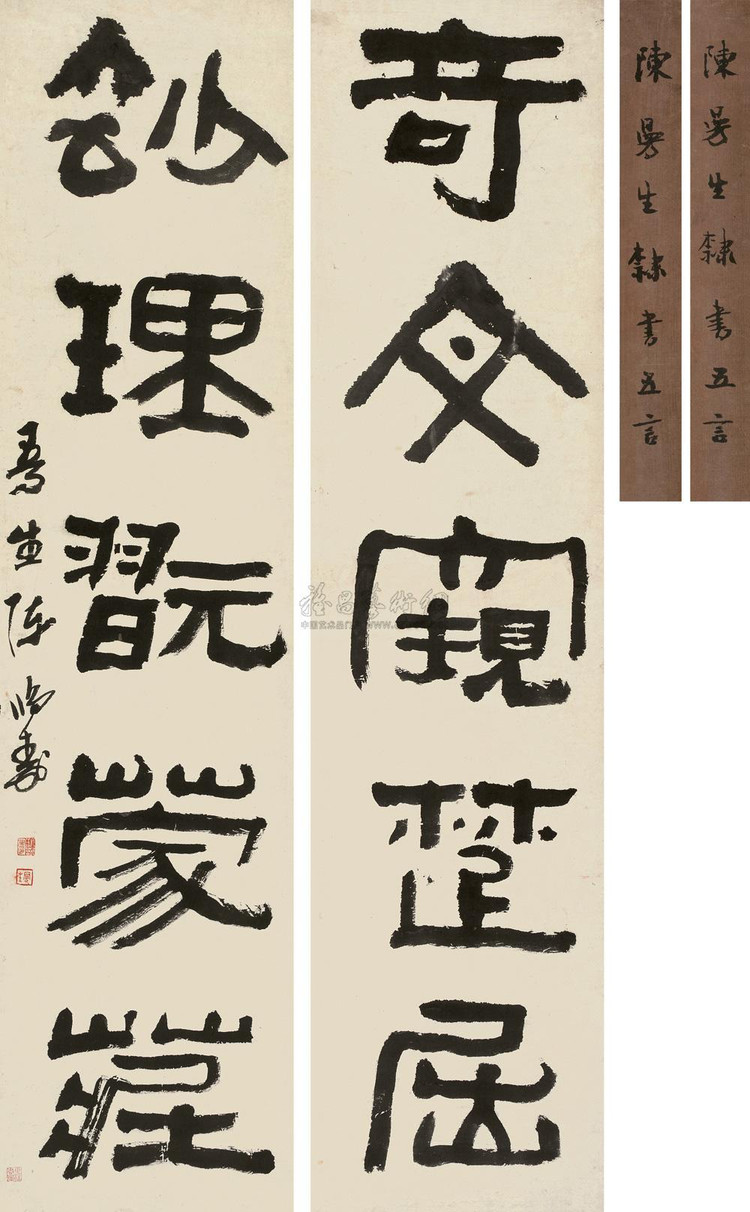 奇文窺楚屈
玅理翫蒙莊
曼生陳鴻壽
陳曼生隸書五言
陳曼生隸書五言
雅昌藝術網